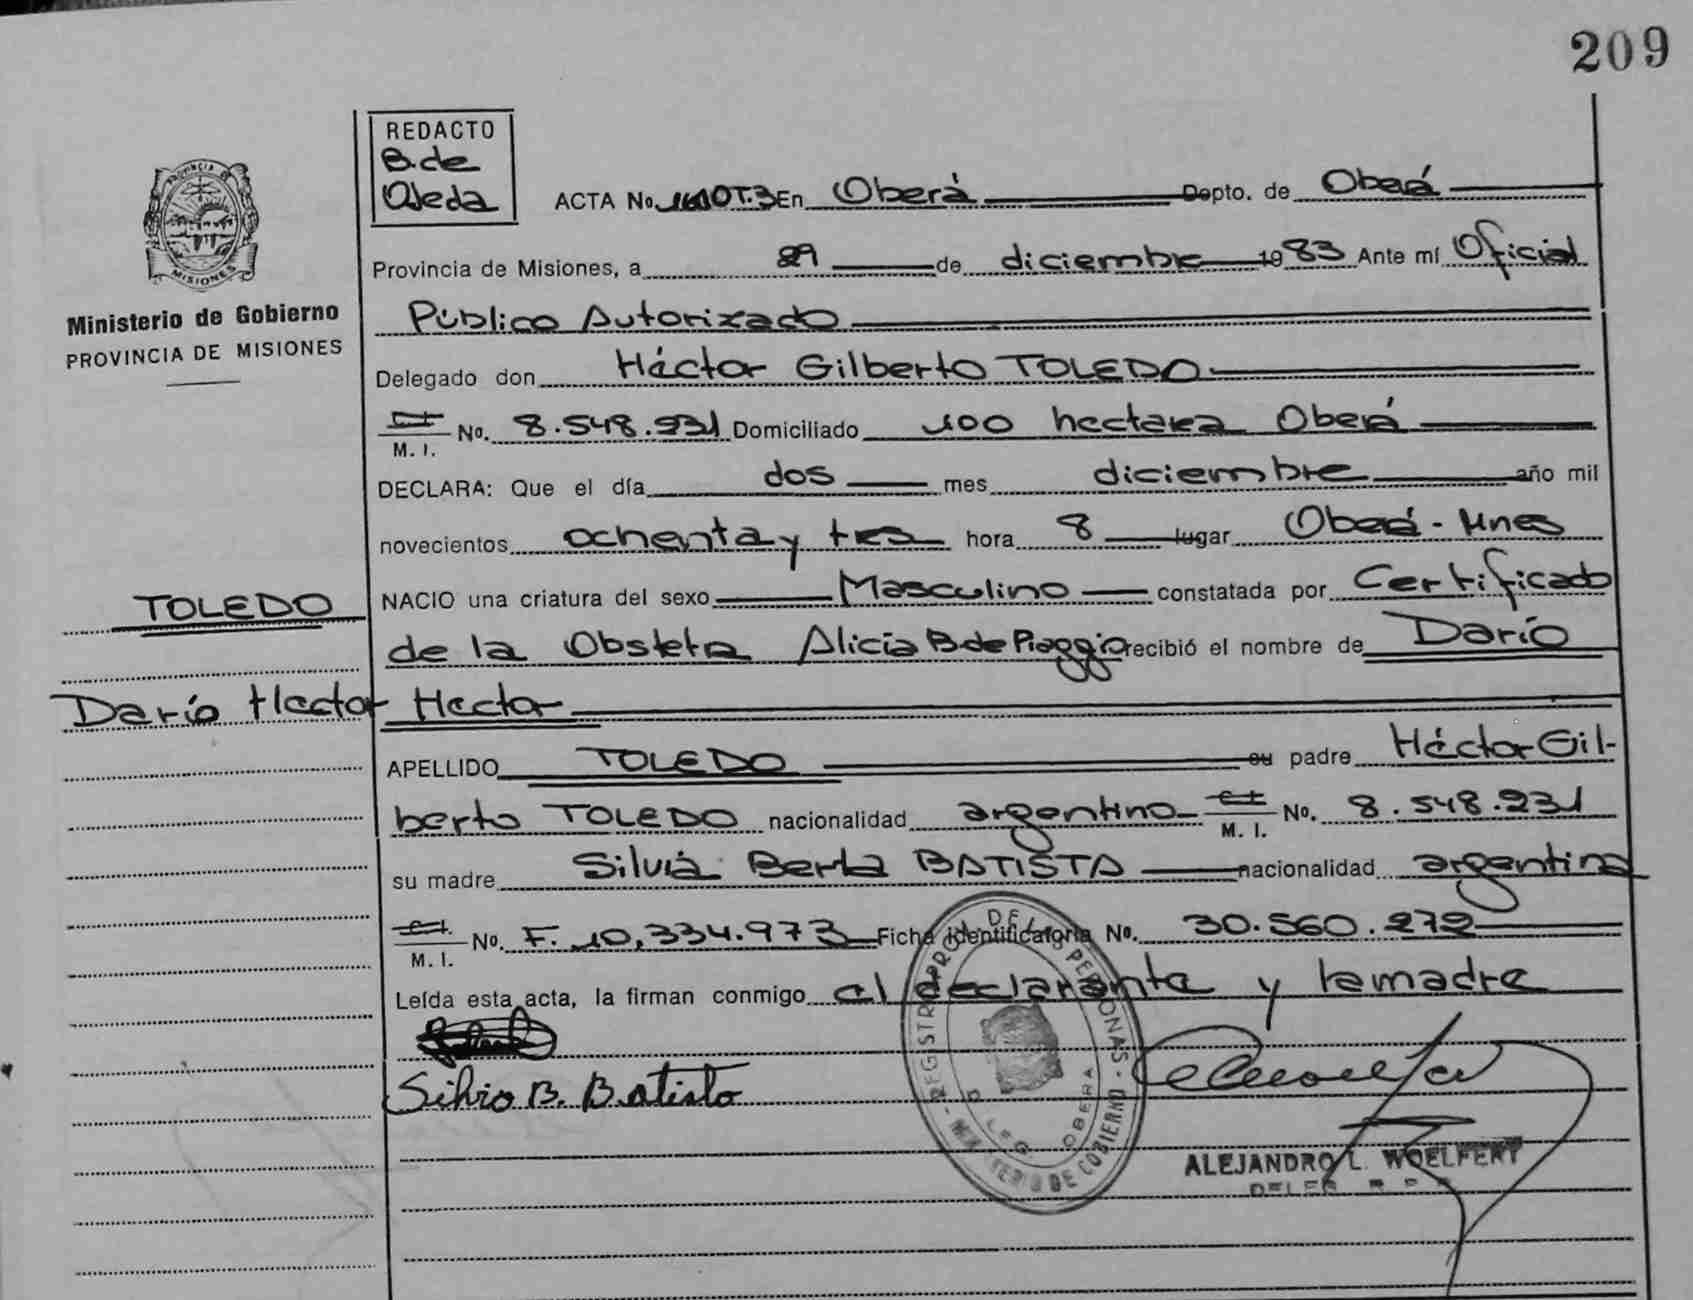 209
REDACTO
B. de
Ojeda
ACTA No. 1610 T.3 En Oberá Depto. de Oberá
PROVINCIA DE
MISIONES
Provincia de Misiones, a 29 de diciembre 1983 Ante mí Oficial
Ministerio de Gobierno
PROVINCIA DE MISIONES
Público Autorizado
Delegado don Héctor Gilberto TOLEDO
M. I. No. 8.548.931 Domiciliado 100 hectarea Oberá
DECLARA: Que el día dos mes diciembre año mil
novecientos ochenta y tres hora 8 lugar Oberá - Mnes
TOLEDO
NACIO una criatura del sexo Masculino constatada por Certificado
de la Obstetra Alicia B. de Piaggio recibió el nombre de Darío
Darío Hector
Hector
APELLIDO TOLEDO su padre Héctor Gil-
berto TOLEDO nacionalidad argentino M. I. No. 8.548.931
su madre Silvia Berta BATISTA nacionalidad argentina
M. I. No. F. 10,334.973 Ficha identificatoria No. 30.560.272
Leída esta acta, la firman conmigo el declarante y la madre
Silvia B. Batista
REGISTRO PROV. DE LAS PERSONAS - MINISTERIO DE GOBIERNO
DELEG. OBERA
ALEJANDRO L. WOELFERT
DELEG. R. P.